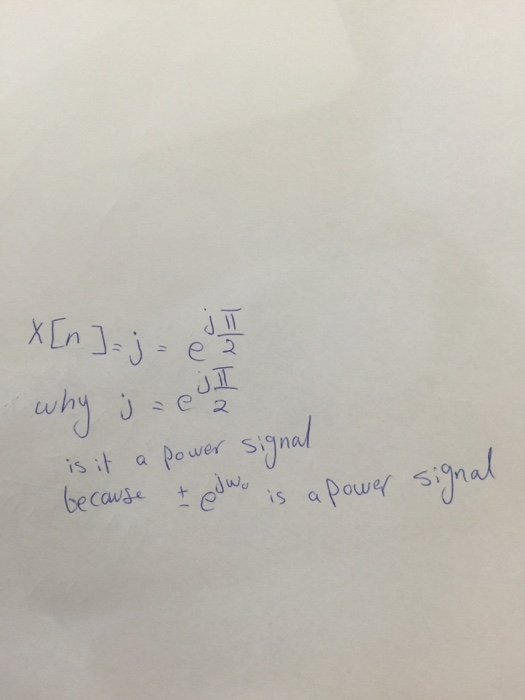 X[n] = j = e^{jπ/2}
why j = e^{jπ/2}
is it a power signal
because ± e^{jw₀} is a power signal